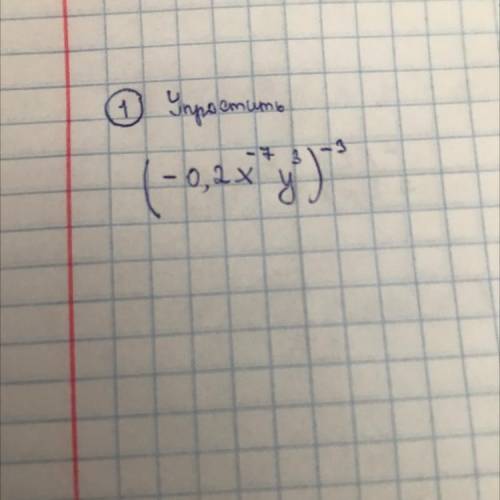 ① Упростить
(-0,2x⁻⁷y³)⁻³